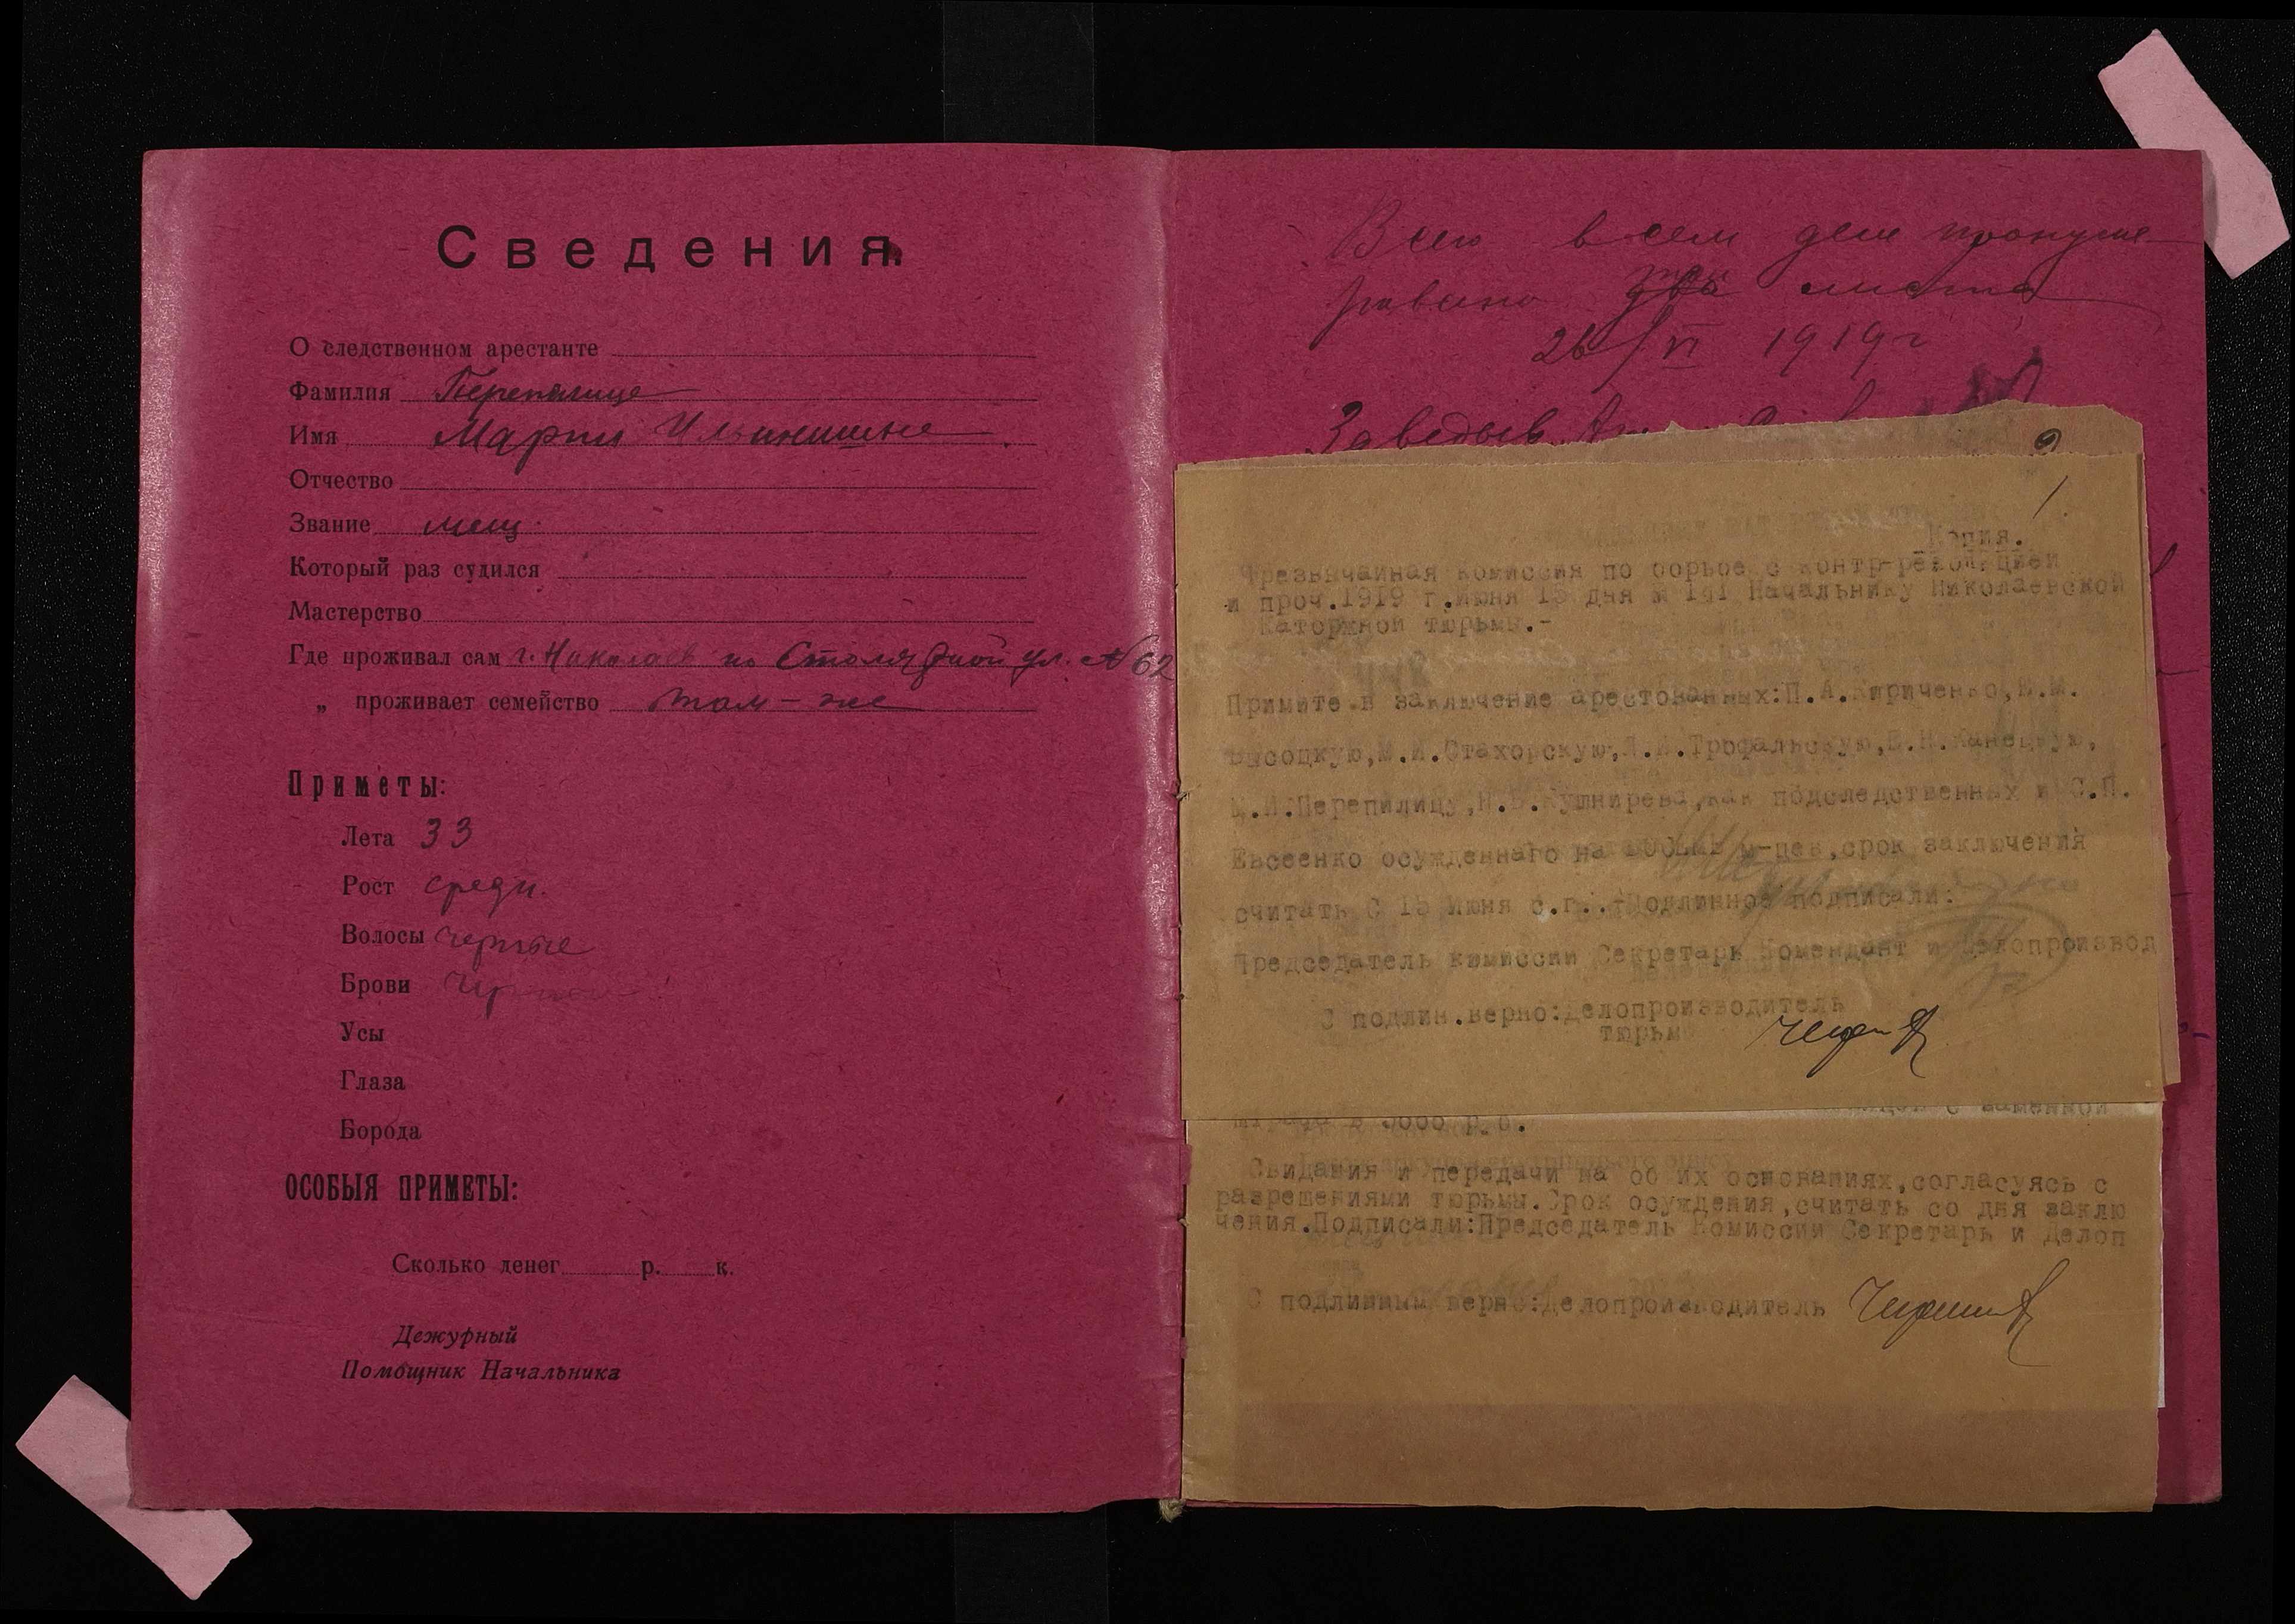 Сведения.
О следственном арестанте
Фамилия Перепилице
Имя Мария Ильинишне
Отчество
Звание мещ.
Который раз судился
Мастерство
Где проживал сам г. Николаев по Столярной ул. № 62
„ проживает семейство там-же
Приметы:
Лета 33
Рост средн.
Волосы черные
Брови
Усы
Глаза
Борода
ОСОБЫЯ ПРИМЕТЫ:
Сколько денег р. к.
Дежурный
Помощник Начальника
Всего в сем деле пронуме-
ровано два три листа
26/VI 1919 г
Заведыв.
2
1
Копия.
Чрезвычайная комиссия по борьбе с контр-революцией
и проч. 1919 г. Июня 15 дня № 141 Начальнику Николаевской
Каторжной тюрьмы.-
Примите в заключение арестованных: П.А. Кириченко,
Высоцкую, М.И. Стахорскую, Трофальскую, Канецкую,
Перепилицу, Кушнирева, как подследственных и С.П.
Евсеенко осужденнаго на м-цев, срок заключения
считать с 15 Июня с.г..-Подлинное подписали:
Председатель комиссии Секретарь Комендант и Делопроизвод
С подлин. верно: Делопроизводитель
тюрьм
с заменной
штрафа в 5000 р.
Свидания и передачи на об их основаниях, согласуясь с
разрешениями тюрьмы. Срок осуждения, считать со дня заклю
чения. Подписали: Председатель Комиссии Секретарь и Делоп
С подлинным верно: Делопроизводитель